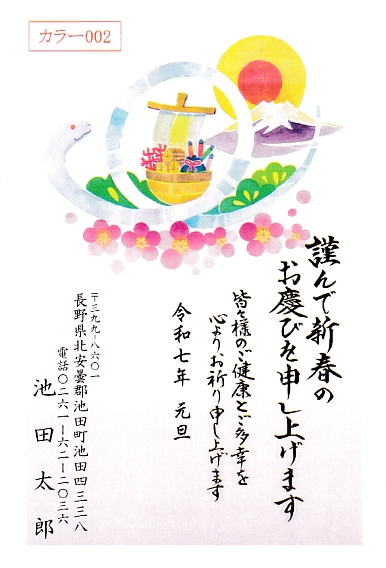 カラー002
謹んで新春の
お慶びを申し上げます
皆々様のご健康とご多幸を
心よりお祈り申し上げます
令和七年 元旦
〒三九九ー八六〇一
長野県北安曇郡池田町池田四三三八
電話〇二六一ー六二ー二〇三六
池田太郎